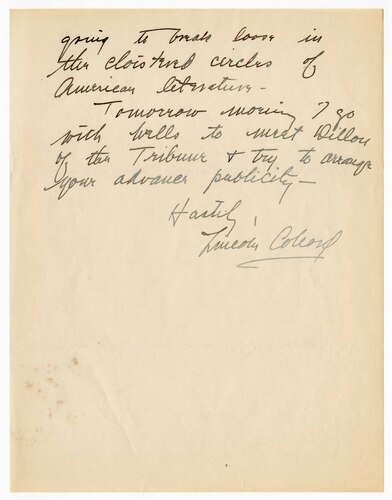 going to break loose in
the cloistered circles of
American literature -
Tomorrow morning I go
with Wells to meet Dillon
of the Tribune & try to arrange
your advance publicity -
Hastily,
Lincoln Colcord